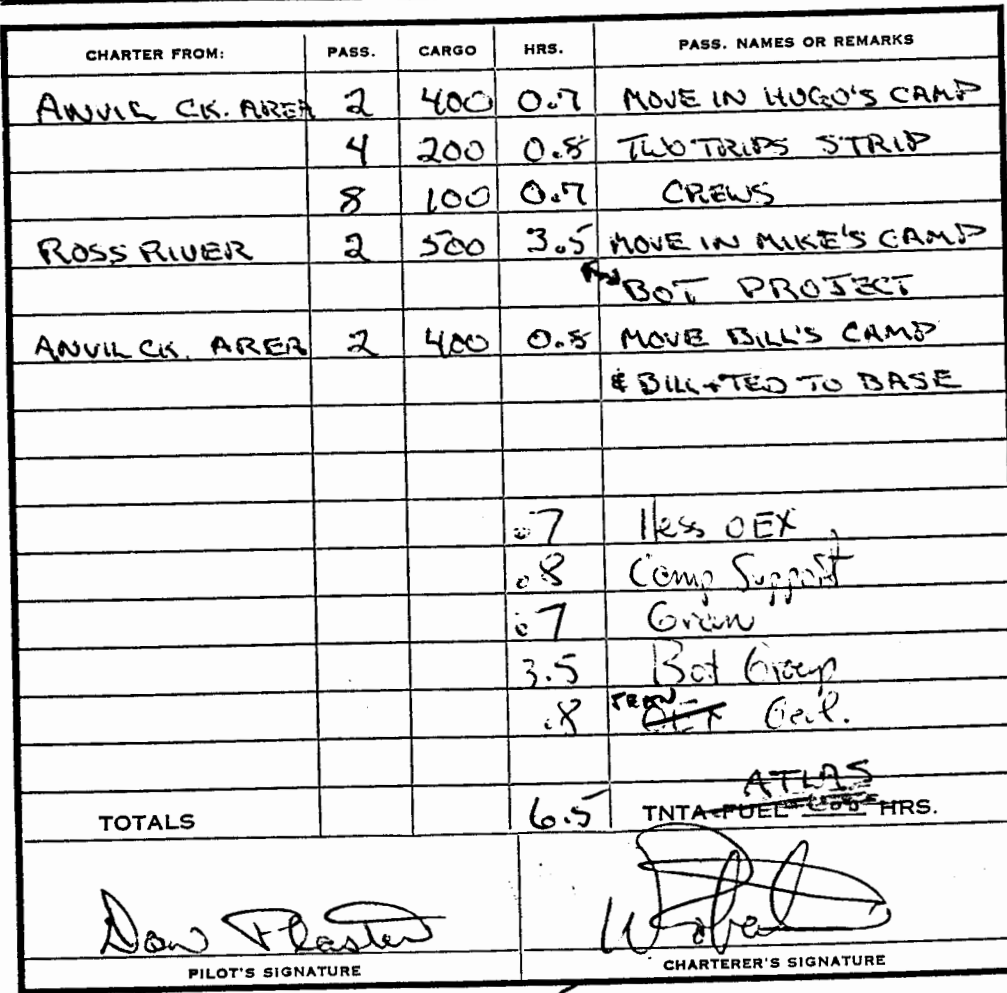 CHARTER FROM: PASS. CARGO HRS. PASS. NAMES OR REMARKS
ANVIL CK. AREA 2 400 0.7 MOVE IN HUGO'S CAMP
4 200 0.8 TWO TRIPS STRIP
8 100 0.7 CREWS
ROSS RIVER 2 500 3.5 MOVE IN MIKE'S CAMP
BOT PROJECT
ANVIL CK. AREA 2 400 0.8 MOVE BILL'S CAMP
& BILL + TED TO BASE
.7 OEX
.8 Camp Support
.7
3.5 Bot Group
.8 OEX
ATLAS
TOTALS 6.5 TNTA-FUEL HRS.
Don
PILOT'S SIGNATURE
CHARTERER'S SIGNATURE